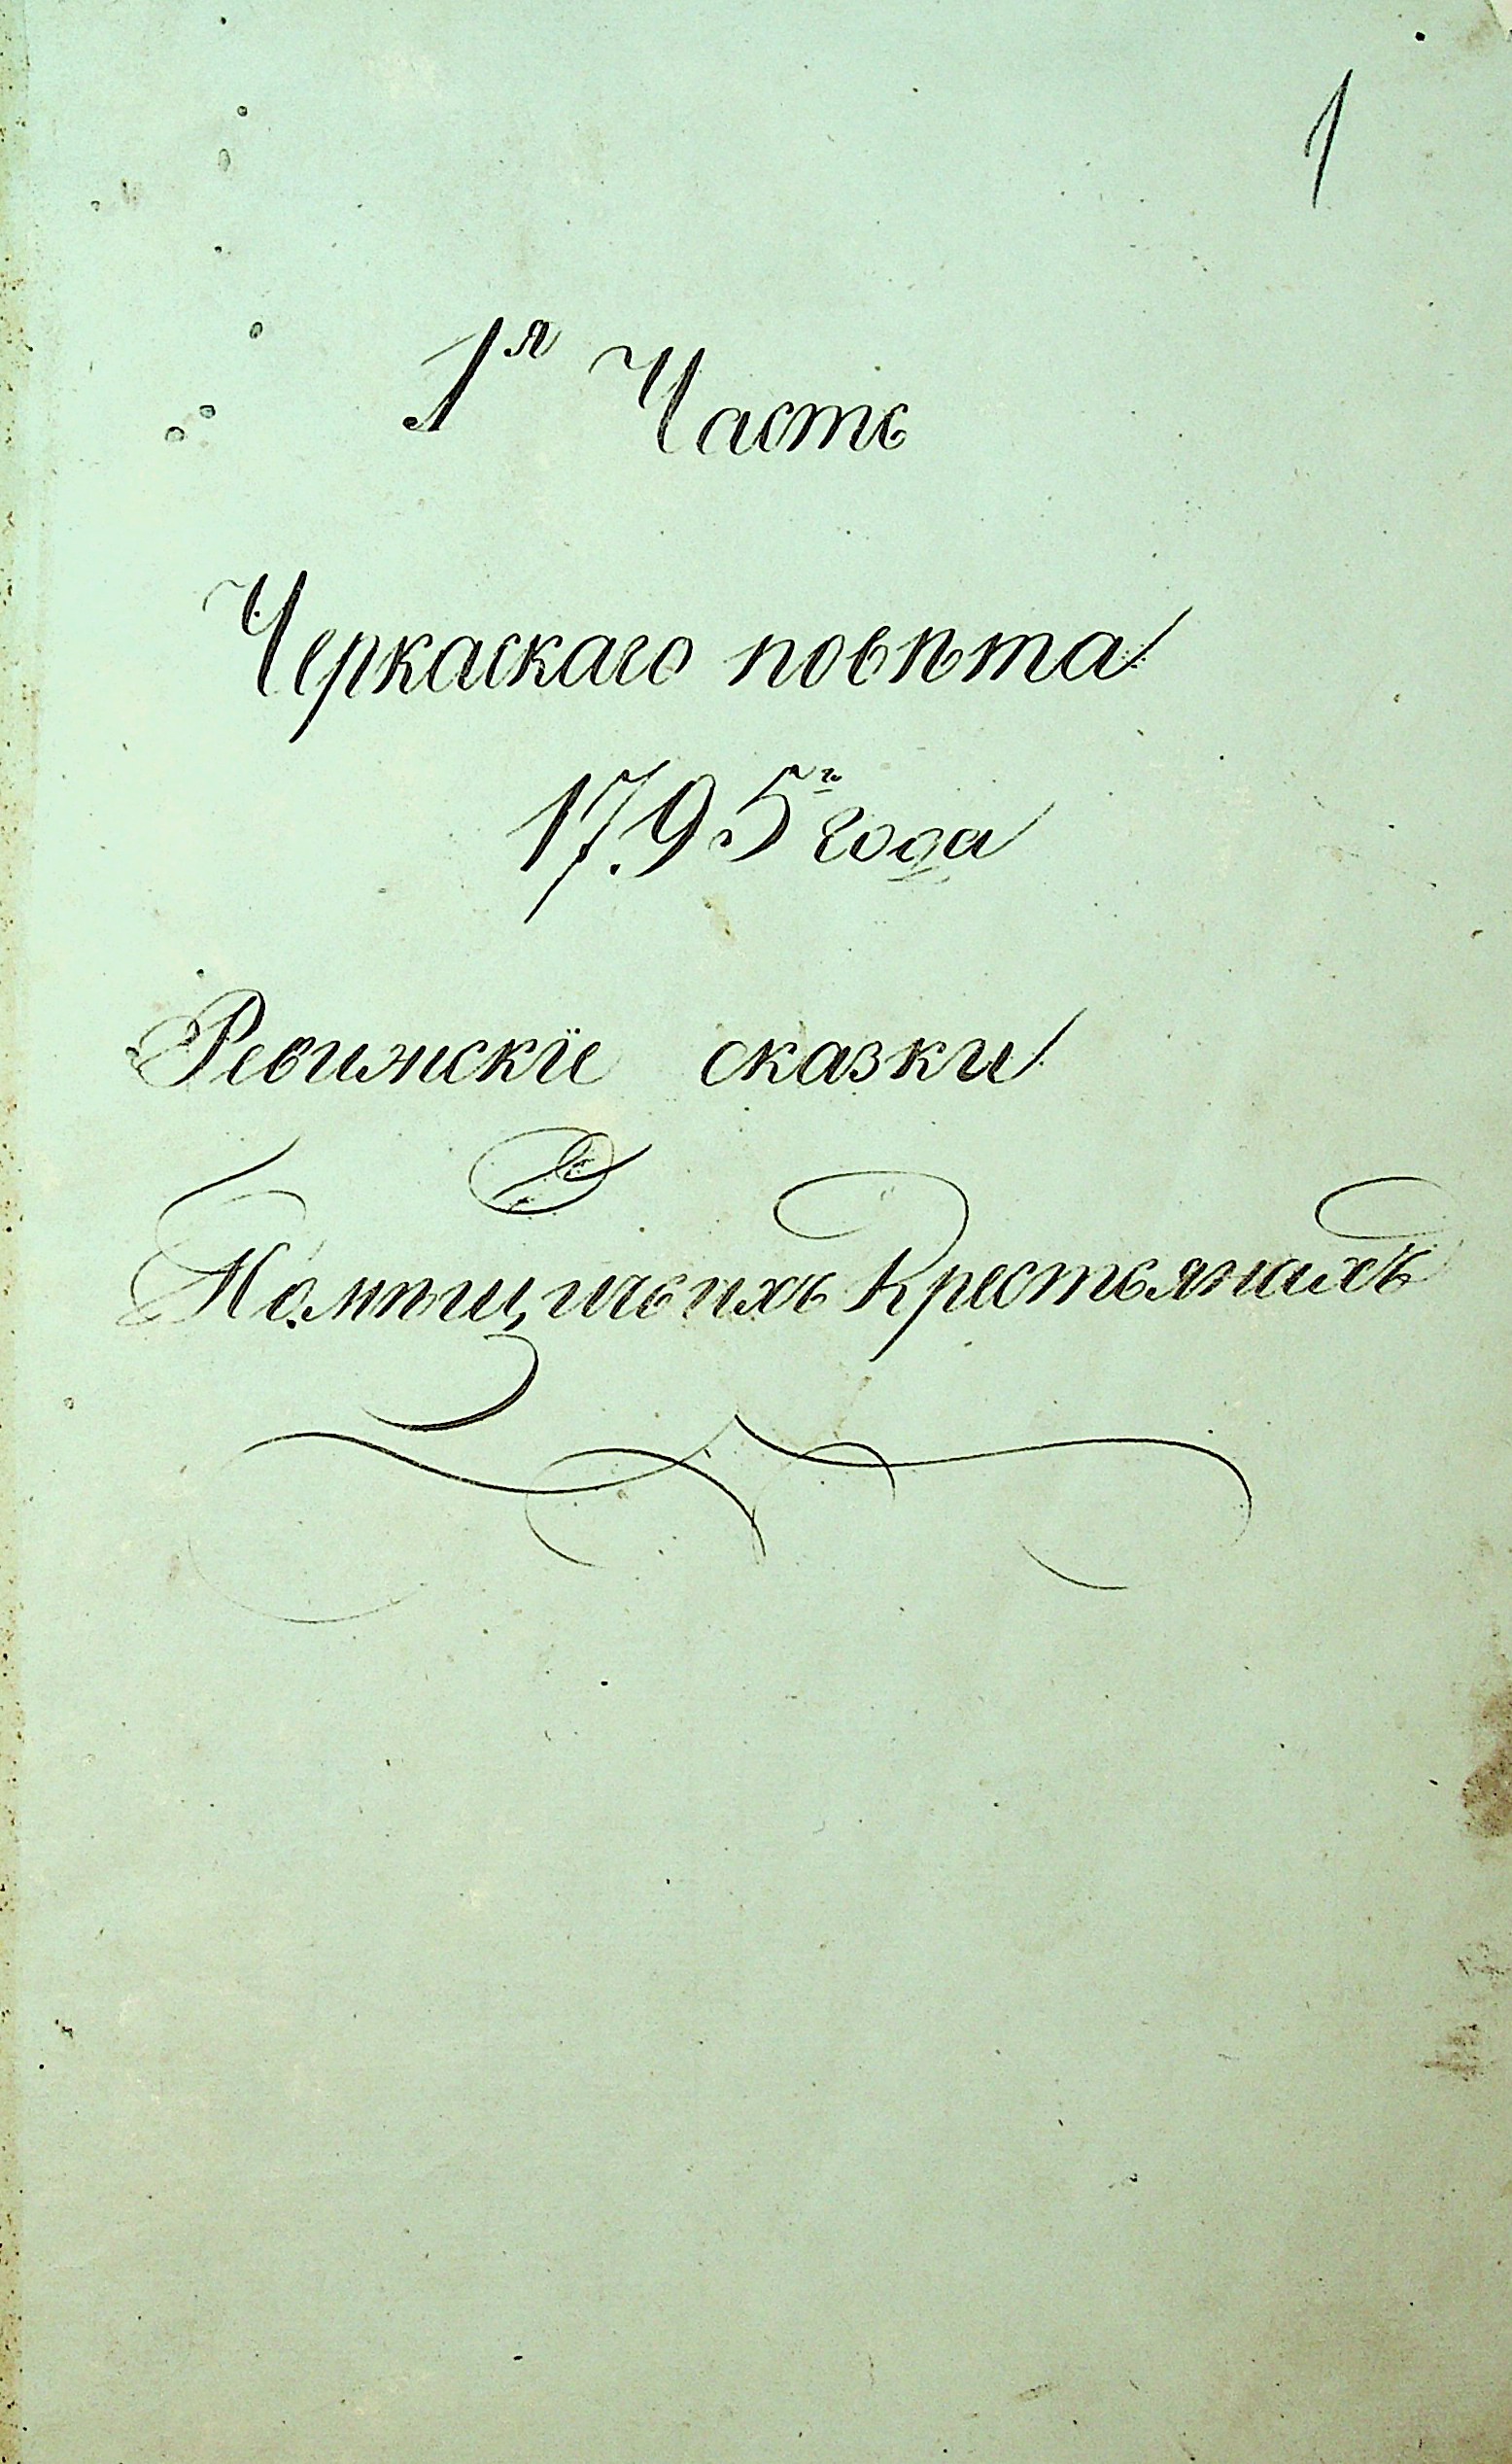 1
1я Часть
Черкаскаго повѣта
1795го года
Ревижскіе сказки
О
Помѣщичьихъ Крестьянахъ